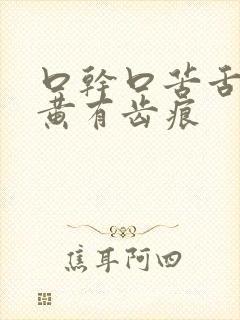 口幹口苦舌
黄有齿痕
焦耳阿四